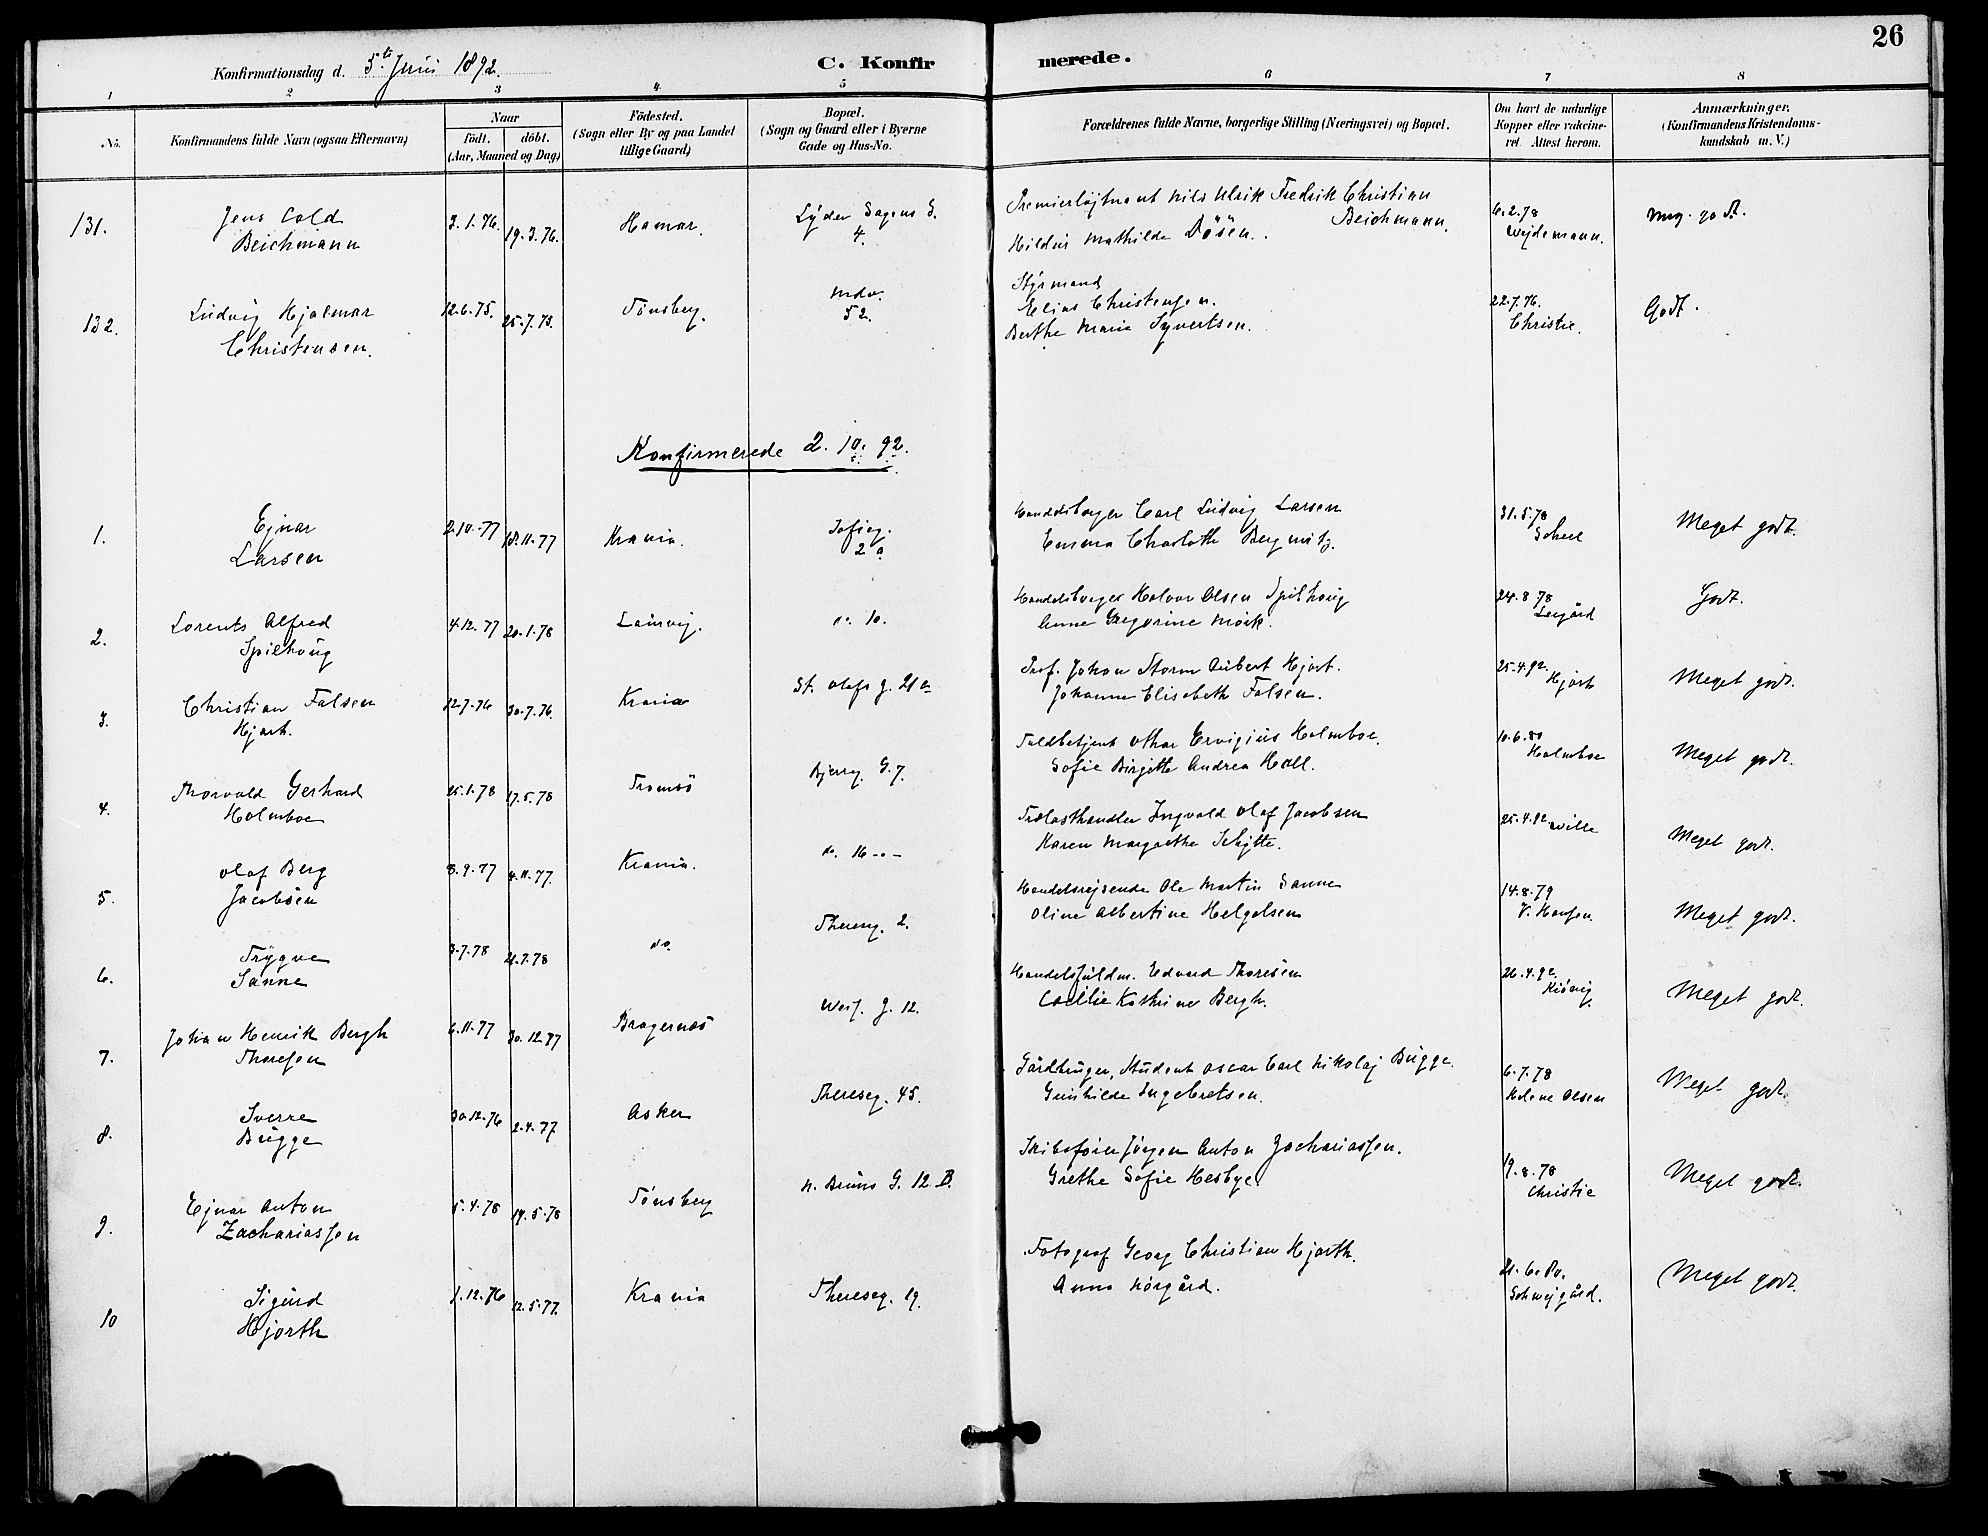 26
Konfirmationsdag d. 5te Juni 1892.
C. Konfirmerede.
1 2 3 4 5 6 7 8
No.
Konfirmandens fulde Navn (ogsaa Efternavn)
Naar
født. døbt.
(Aar, Maaned og Dag)
Födested.
(Sogn eller By og paa Landet
tillige Gaard)
Bopæl.
(Sogn og Gaard eller i Byerne
Gade og Hus-No.
Forældrenes fulde Navne, borgerlige Stilling (Næringsvei) og Bopæl.
Om havt de naturlige
Kopper eller vakcine-
ret. Attest herom.
Anmærkninger.
(Konfirmandens Kristendoms-
kundskab m. V.)
131. Jens Cold 3.1.76. 19.3.76. Hamar. Lyder Sagens G. Premierløjtnant Nils Ulrik Fredrik Christian 6.2.78 Mg. godt.
Beichmann 4. Hildur Mathilde Døsen. Beichmann. Wejdemann.
132. Ludvig Hjalmar 12.6.75. 25.7.75. Tönsberg. Mdv. Styrmand 22.7.76. Godt.
Christensen. 52. Elias Christensen. Christie.
Berthe Marie Syvertsen.
Konfirmerede 2. 10. 92.
1. Ejnar 2.10.77 18.11.77 Krania. Sofieg. Handelsborger Carl Ludvig Larsen 31.5.78 Meget godt.
Larsen 2a Emma Charlotte Bergwitz. Scheel
2. Lorents Alfred 4.12.77 20.1.78 Laurvig. do. 10. Handelsborger Halvor Olsen Spilhaug 24.8.78 Godt.
Spilhaug Anne Gregorine Mörk.
3. Christian Falsen 12.7.76 30.7.76. Krania St. Olafs g. 21 a Prof. Johan Storm Aubert Hjort. 25.4.92. Hjort Meget godt.
Hjort. Johanne Elisabeth Falsen.
4. Thorvald Gerhard 25.1.78 17.5.78 Tromsö Bjerreg. G. 7. Toldbetjent Othar Ervigius Holmboe. 10.6.80 Meget godt.
Holmboe Sofie Birgitte Andrea Holl. Holmboe
5. Olaf Berg 8.9.77 4.11.77. Krania. do. 16 Trælasthandler Ingvald Olaf Jacobsen 25.4.92 Wille Meget godt.
Jacobsen Karen Margrethe Schytte.
6. Trygve 3.7.78 21.7.78 do. Thereseg. 2. Handelsrejsende Ole Martin Sanne 14.8.79 Meget godt.
Sanne Oline Albertine Helgelsen V. Hansen.
7. Johan Henrik Bergh 6.11.77 30.12.77 Bragernæs G. 12. Handelsfuldm. Edvard Thoresen 26.4.92. Meget godt.
Thoresen Cæcilie Kathrine Bergh.
8. Sverre 30.12.76 2.4.77 Asker Thereseg. 45. Gårdbruger, Student Oscar Carl Nikolaj Bugge. 6.7.78 Meget godt.
Bugge Gunhilde Ingebretsen. Helene Olsen
9. Ejnar Anton 5.4.78 19.5.78 Tönsberg N. Bruns G. 12 B. Skibsfører Jörgen Anton Zachariassen. 19.8.78 Meget godt.
Zachariassen Grethe Sofie Hesbye. Christie
10 Sigurd 1.12.76 12.5.77. Krania Thereseg. 19. Fotograf Georg Christian Hjorth. 21.6.80. Meget godt.
Hjorth Anna Nörgård. Schwejgård.